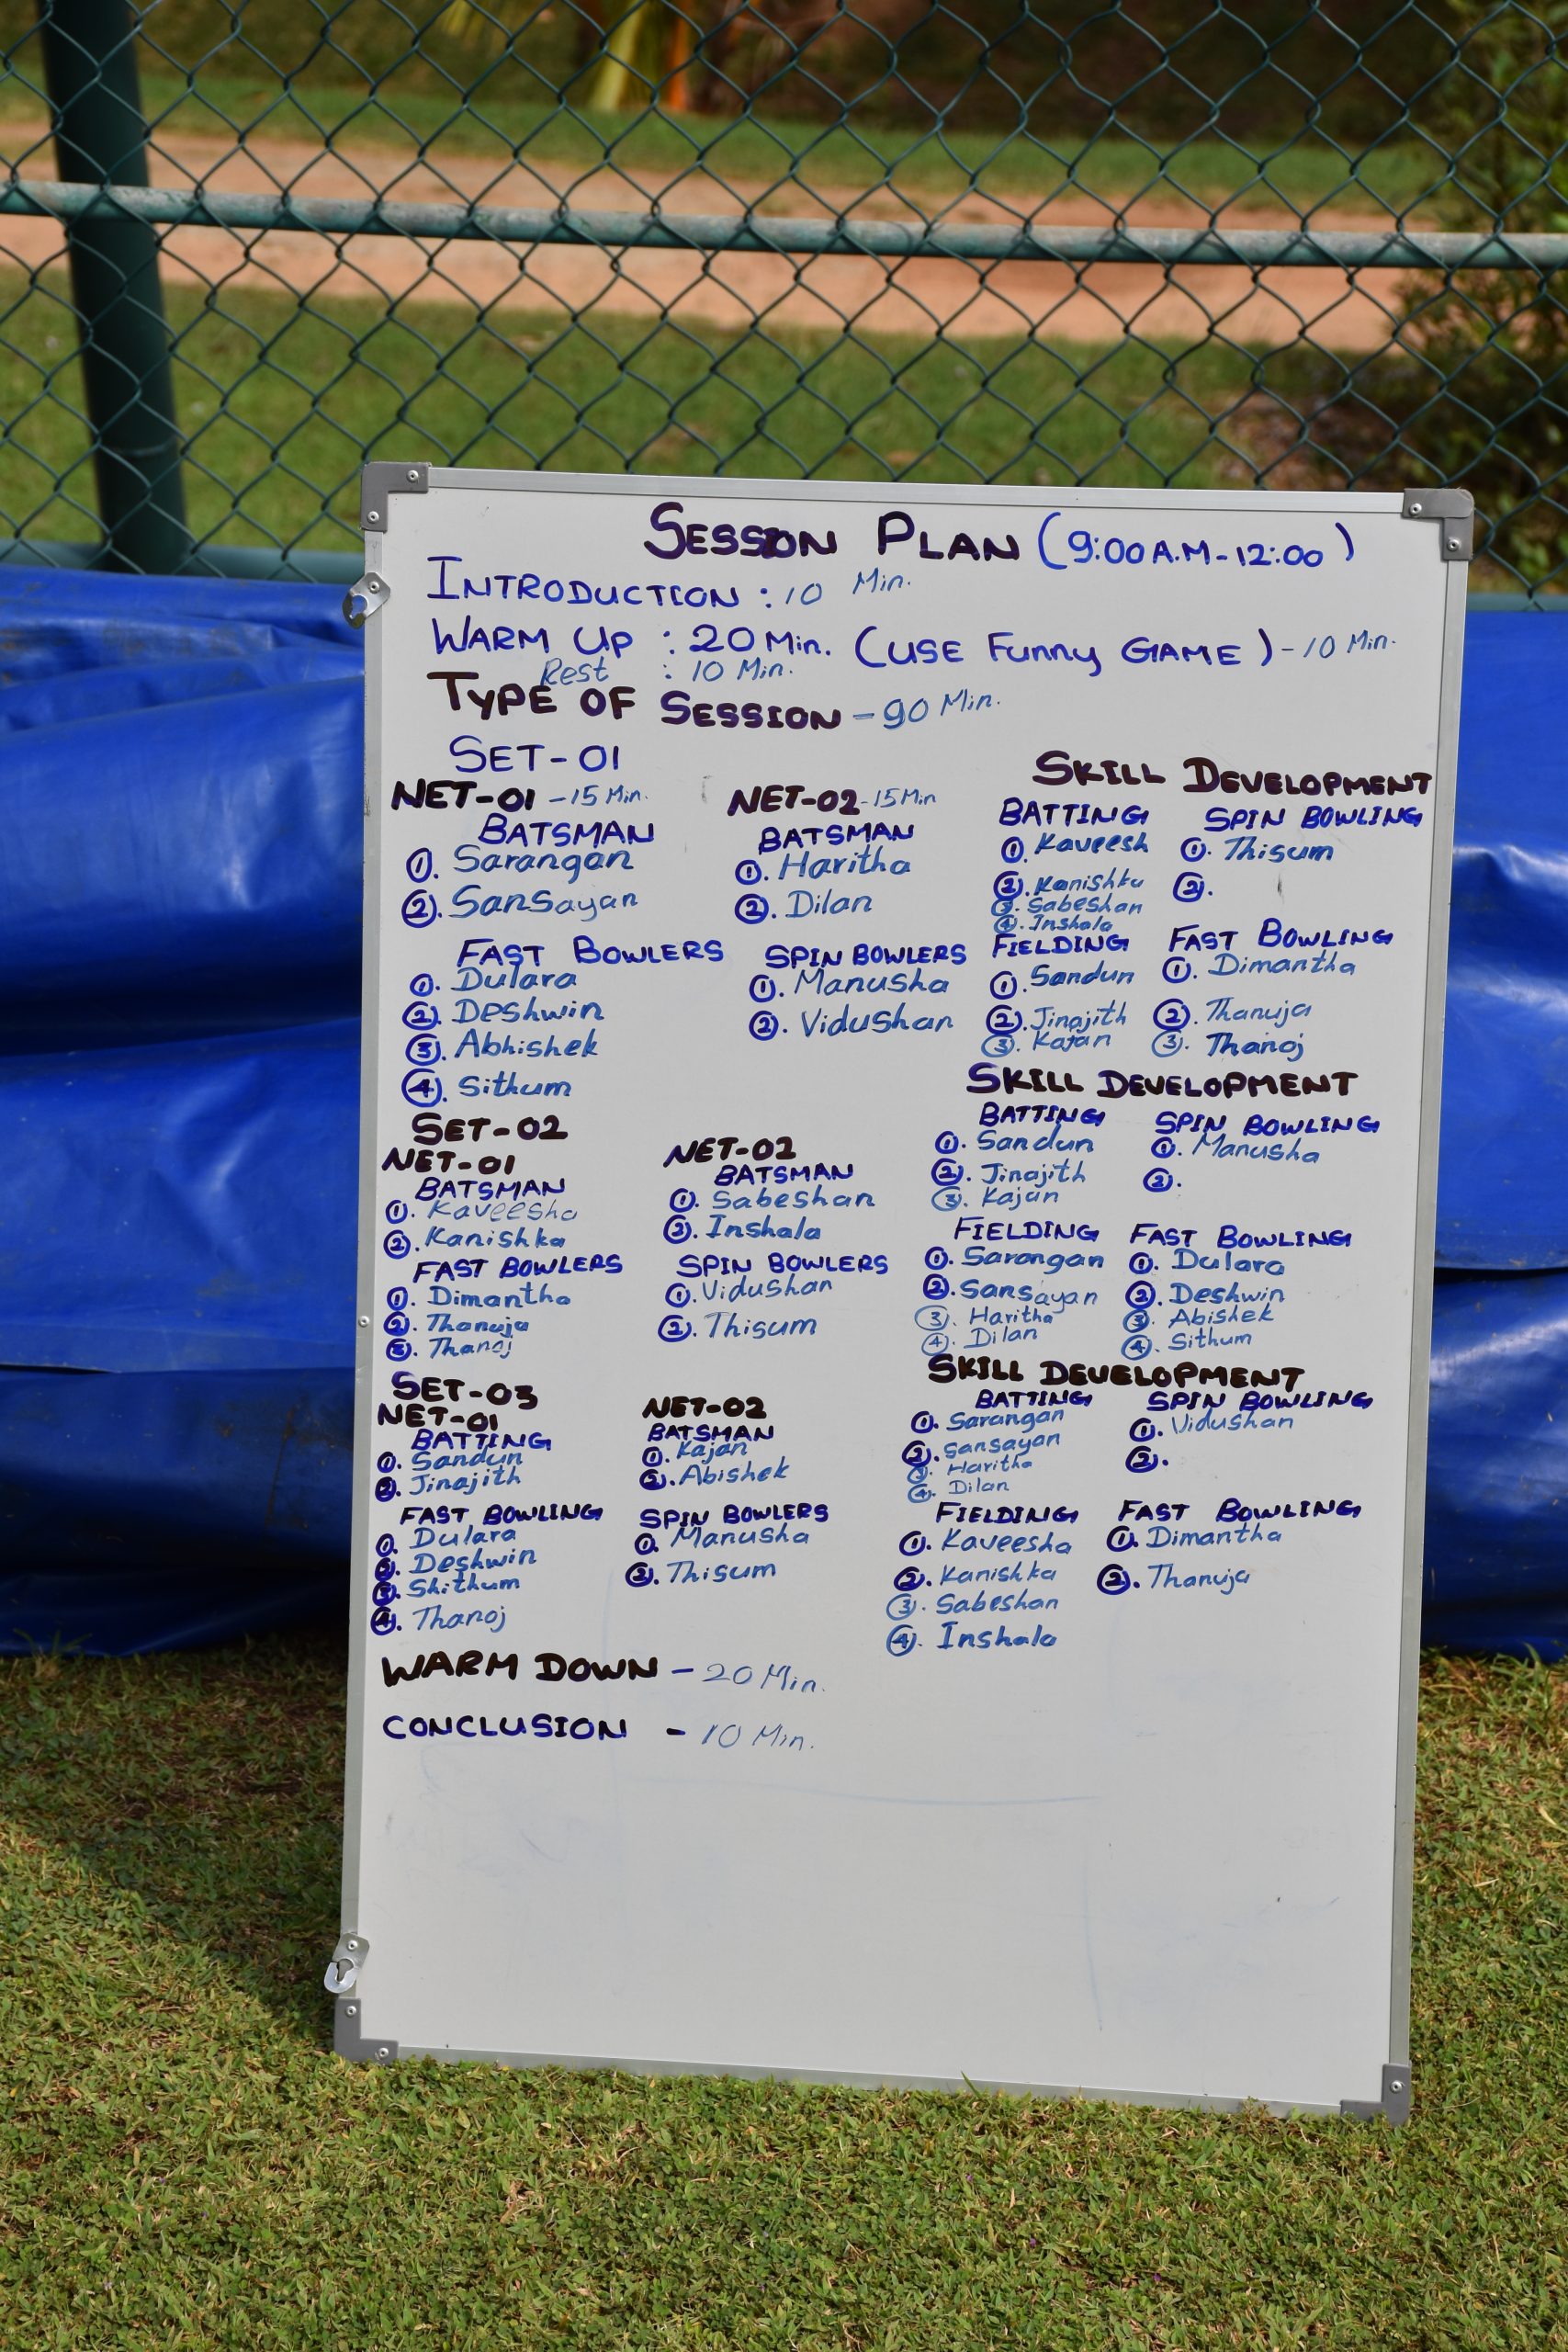 SESSION PLAN (9:00 A.M - 12:00)
INTRODUCTION : 10 Min.
WARM UP : 20 Min. (USE Funny GAME) - 10 Min.
Rest : 10 Min.
TYPE OF SESSION - 90 Min.
SET-01
NET-01 - 15 Min.
BATSMAN
①. Sarangan
②. Sansayan
FAST BOWLERS
①. Dulara
②. Deshwin
③. Abhishek
④. Sithum
NET-02 - 15 Min
BATSMAN
①. Haritha
②. Dilan
SPIN BOWLERS
①. Manusha
②. Vidushan
SKILL DEVELOPMENT
BATTING
①. Kaveesh
②. Kanishka
③. Sabeshan
④. Inshala
SPIN BOWLING
①. Thisum
②.
FIELDING
①. Sandun
②. Jinajith
③. Kajan
FAST BOWLING
①. Dimantha
②. Thanuja
③. Thanoj
SET-02
NET-01
BATSMAN
①. Kaveesha
②. Kanishka
FAST BOWLERS
①. Dimantha
②. Thanuja
③. Thanoj
NET-02
BATSMAN
①. Sabeshan
②. Inshala
SPIN BOWLERS
①. Vidushan
②. Thisum
SKILL DEVELOPMENT
BATTING
①. Sandun
②. Jinajith
③. Kajan
SPIN BOWLING
①. Manusha
②.
FIELDING
①. Sarangan
②. Sansayan
③. Haritha
④. Dilan
FAST BOWLING
①. Dulara
②. Deshwin
③. Abishek
④. Sithum
SET-03
NET-01
BATTING
①. Sandun
②. Jinajith
FAST BOWLING
①. Dulara
②. Deshwin
③. Shithum
④. Thanoj
NET-02
BATSMAN
①. Kajan
②. Abishek
SPIN BOWLERS
①. Manusha
②. Thisum
SKILL DEVELOPMENT
BATTING
①. Sarangan
②. Sansayan
③. Haritha
④. Dilan
SPIN BOWLING
①. Vidushan
②.
FIELDING
①. Kaveesha
②. Kanishka
③. Sabeshan
④. Inshala
FAST BOWLING
①. Dimantha
②. Thanuja
WARM DOWN - 20 Min.
CONCLUSION - 10 Min.